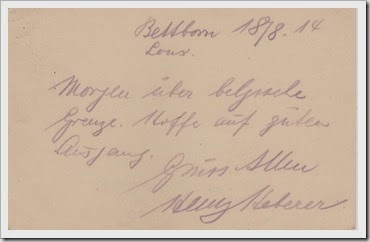 Bettborn 18/8. 14
Lux.
Morgen über belgische
Grenze. Hoffe auf guten
Ausgang.
Gruss Allen
Keberer